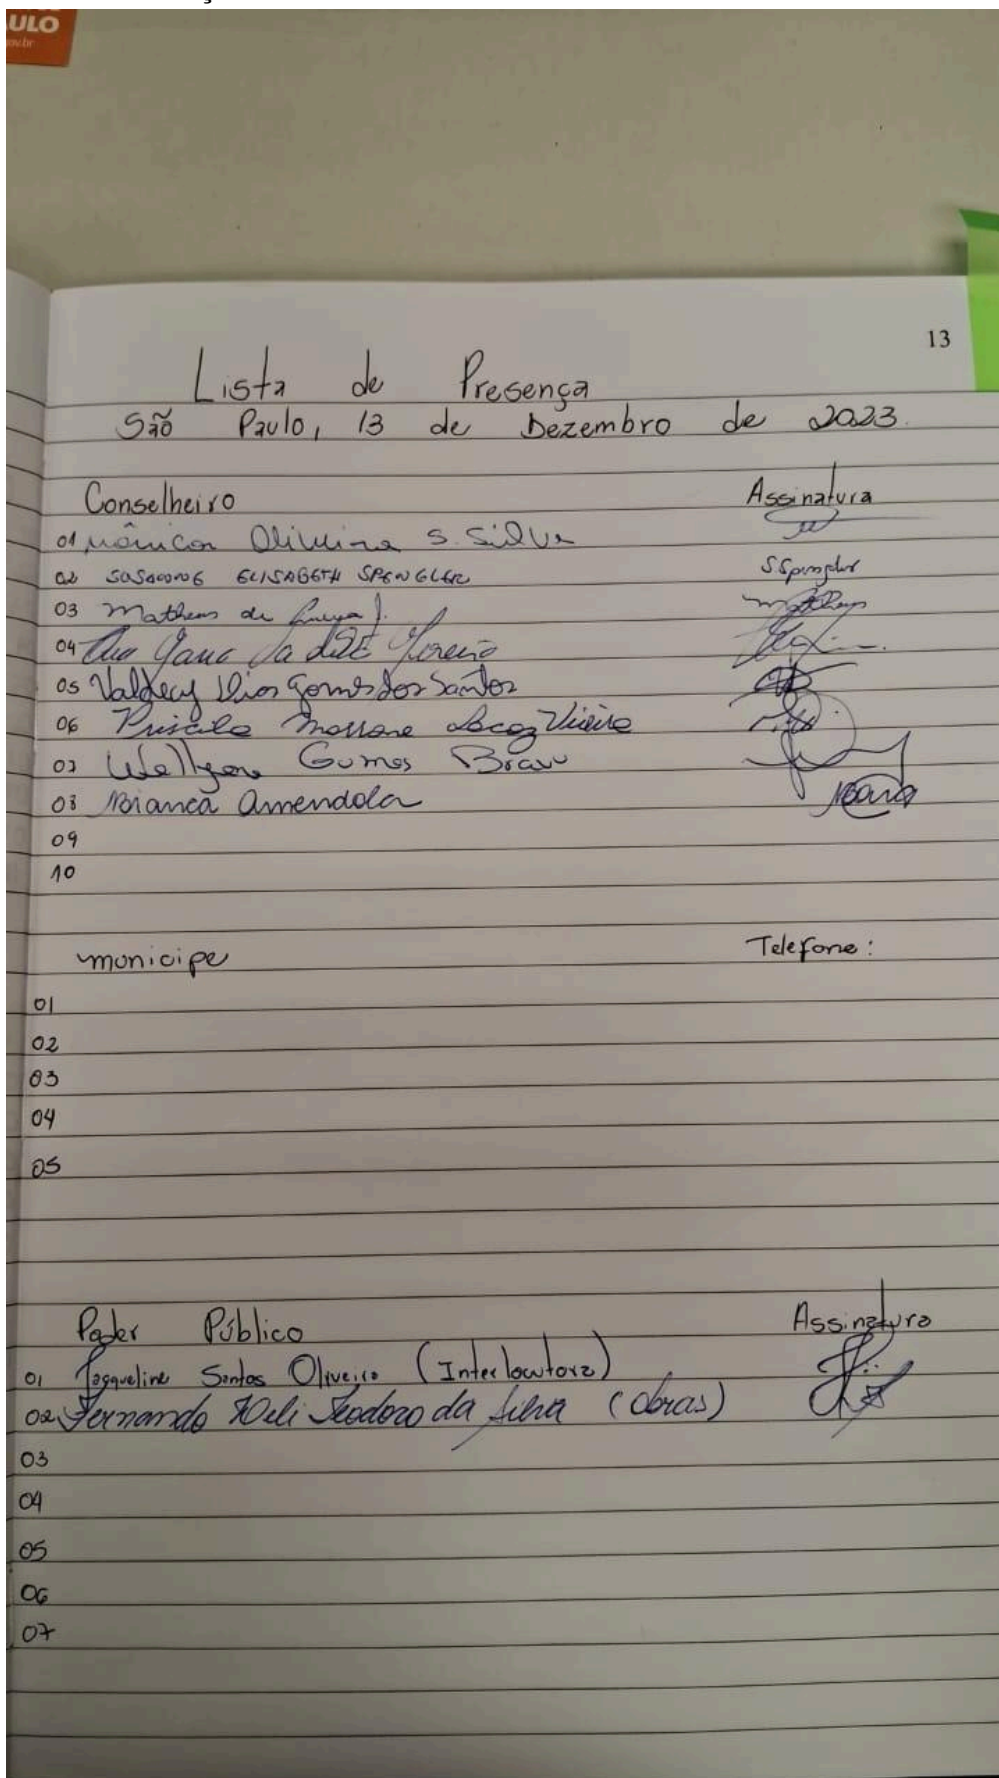 ULO
ov.br
13
Lista de Presença
São Paulo, 13 de Dezembro de 2023.
Conselheiro Assinatura
01 Mônica Oliveira S. Silva
02 SUSANNE ELISABETH SPENGLER SSpengler
03 Matheus de J. Matheus
04 Ana
05 Valdecy Dias Gomes dos Santos
06 Priscila Vieira
07 Gomes Bravo
08 Bianca Amendola
09
10
municipe Telefone:
01
02
03
04
05
Poder Público Assinatura
01 Jaqueline Santos Oliveira (Interlocutora)
02 Fernando Teodoro da Silva (Obras)
03
04
05
06
07